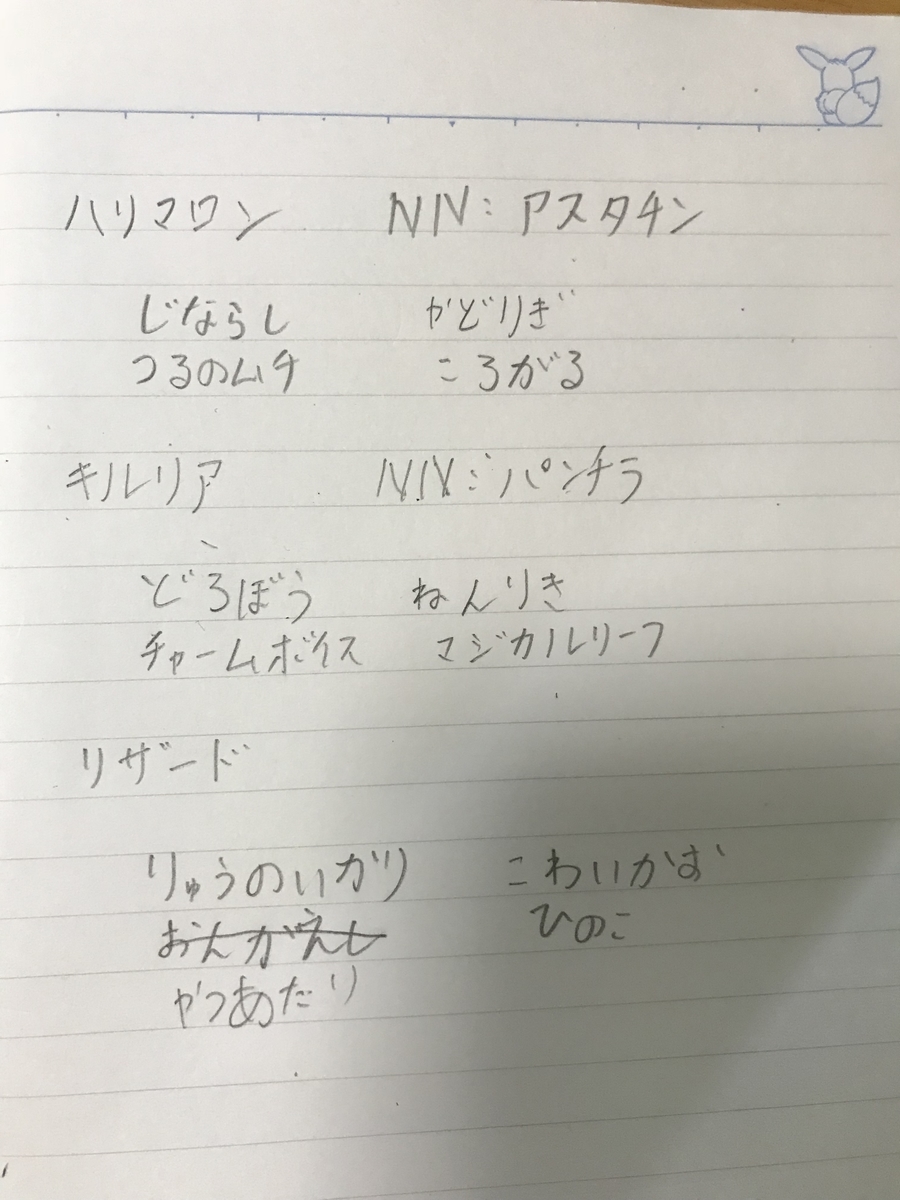 ハリマロン NN:アスタチン
じならし やどりぎ
つるのムチ ころがる
キルリア NN:パンチラ
どろぼう ねんりき
チャームボイス マジカルリーフ
リザード
りゅうのいかり こわいかお
おんがえし ひのこ
やつあたり